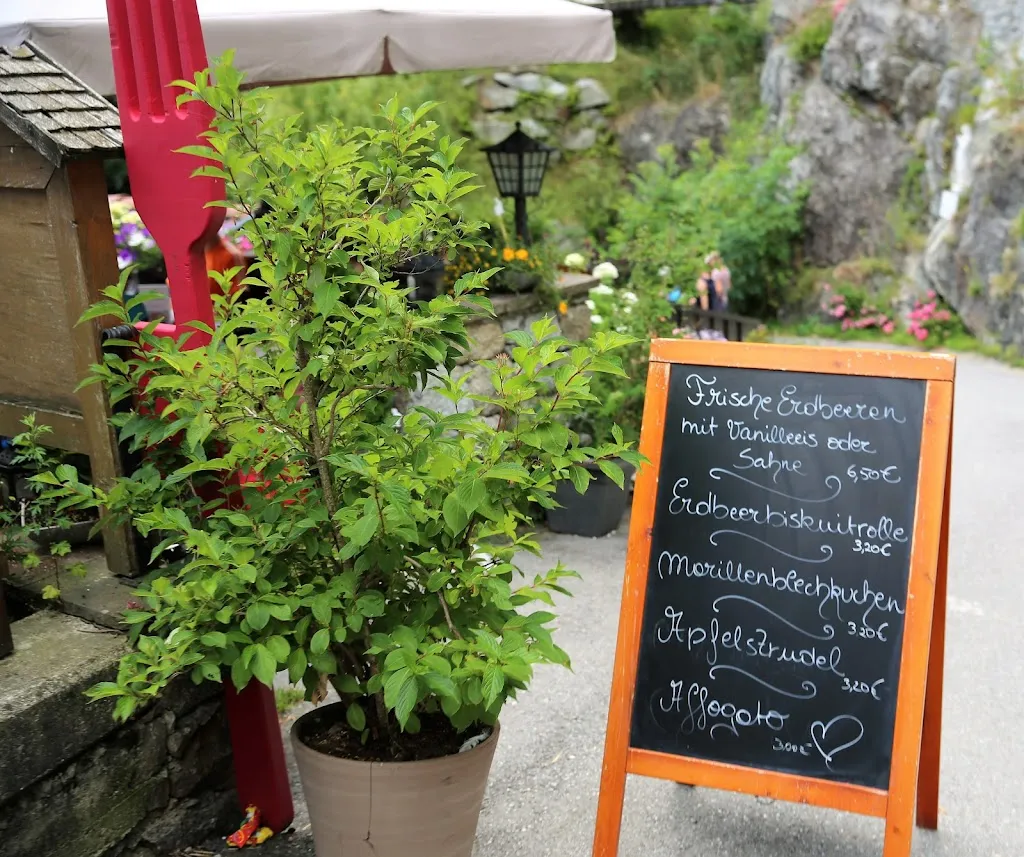 Frische Erdbeeren
mit Vanilleeis oder
Sahne 6,50€
Erdbeerbiskuitrolle
3,20€
Marillenblechkuchen
3,20€
Apfelstrudel
3,20€
Affogato
3,00€